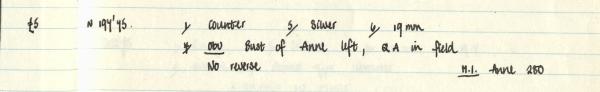 £5 N 194'45. 1/ Counter 5/ Silver 6/ 19mm
7/ Obv Bust of Anne left, QA in field
No reverse M.I. Anne 280